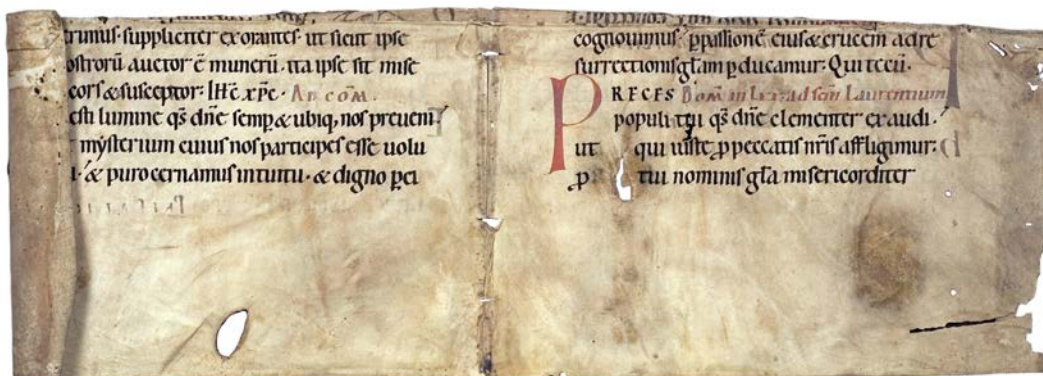 erimus suppliciter exorantes· ut sicut ipse
ostrorū auctor ē munerū· ita ipse sit mise
cors & susceptor· Ihc xpc· Ad cōm̄.
esti lumine qs dne semp & ubiq nos preveni
mysterium cuius nos participes esse uolu
i· & puro cernamus intuitu· & digno pci
cognouimus p passionē eius & crucem ad re
surrectionis gl̄am p ducamur· Qui tecū·
PRECES Dom̄ in Lxx ad scm̄ Laurentium
populi tui qs dne clementer exaudi·
ut qui iuste p peccatis nr̄is affligimur·
p tui nominis gl̄a misericorditer